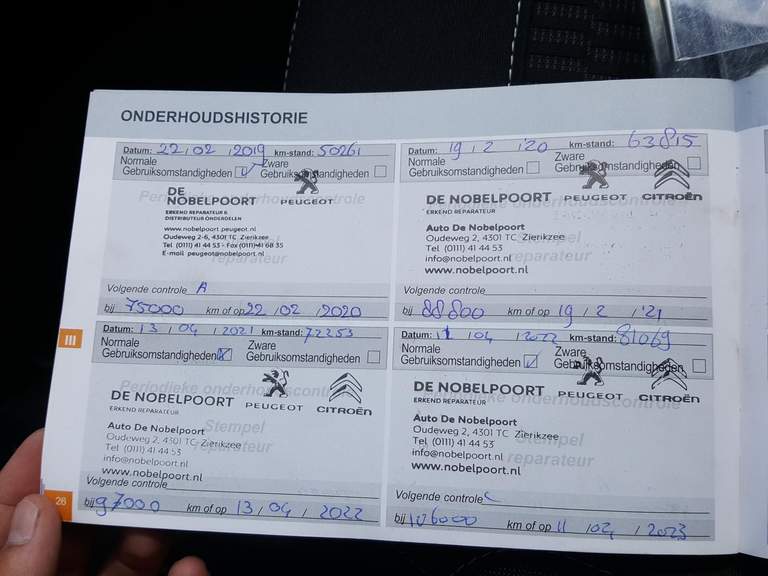 ONDERHOUDSHISTORIE
Datum: 22/02/2019 km-stand: 50261
Normale Gebruiksomstandigheden Zware Gebruiksomstandigheden
Periodieke onderhoudscontrole
DE NOBELPOORT PEUGEOT
ERKEND REPARATEUR &
DISTRIBUTEUR ONDERDELEN
www.nobelpoort.peugeot.nl
Oudeweg 2-6, 4301 TC Zierikzee
Tel (0111) 41 44 53 - Fax (0111) 41 68 35
E-mail peugeot@nobelpoort.nl
Stempel
reparateur
Volgende controle A
bij 75000 km of op 22/02/2020
Datum: 19/2/'20 km-stand: 63815
Normale Gebruiksomstandigheden Zware Gebruiksomstandigheden
Periodieke onderhoudscontrole
DE NOBELPOORT PEUGEOT CITROËN
ERKEND REPARATEUR
Auto De Nobelpoort
Oudeweg 2, 4301 TC Zierikzee
Tel (0111) 41 44 53
info@nobelpoort.nl
www.nobelpoort.nl
Stempel
reparateur
Volgende controle
bij 88800 km of op 19/2/'21
III
Datum: 13/04/2021 km-stand: 72253
Normale Gebruiksomstandigheden Zware Gebruiksomstandigheden
Periodieke onderhoudscontrole
DE NOBELPOORT PEUGEOT CITROËN
ERKEND REPARATEUR
Auto De Nobelpoort
Oudeweg 2, 4301 TC Zierikzee
Tel (0111) 41 44 53
info@nobelpoort.nl
www.nobelpoort.nl
Stempel
reparateur
Volgende controle
bij 97000 km of op 13/04/2022
Datum: 11/04/2022 km-stand: 81069
Normale Gebruiksomstandigheden Zware Gebruiksomstandigheden
Periodieke onderhoudscontrole
DE NOBELPOORT PEUGEOT CITROËN
ERKEND REPARATEUR
Auto De Nobelpoort
Oudeweg 2, 4301 TC Zierikzee
Tel (0111) 41 44 53
info@nobelpoort.nl
www.nobelpoort.nl
Stempel
reparateur
Volgende controle C
bij 106000 km of op 11/04/2023
28